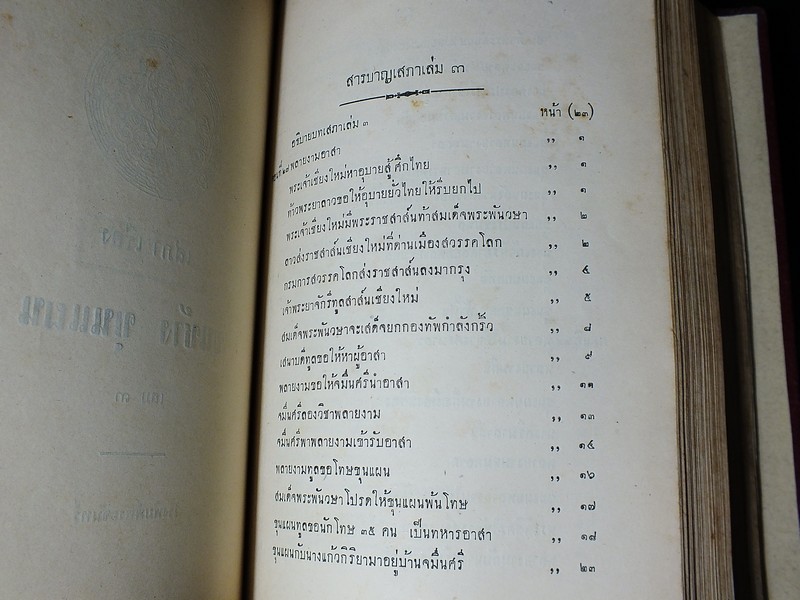 สารบาญเสภาเล่ม ๓
หน้า (๒๓)
อธิบายบทเสภาเล่ม ๓
ตอนที่ ๒๗ พลายงามอาสา ,, ๑
พระเจ้าเชียงใหม่หาอุบายสู้ศึกไทย ,, ๑
ท้าวพระยาลาวขอให้อุบายยั่วไทยให้รีบยกไป ,, ๑
พระเจ้าเชียงใหม่มีพระราชสาส์นท้าสมเด็จพระพันวษา ,, ๒
ลาวส่งราชสาส์นเชียงใหม่ที่ด่านเมืองสวรรคโลก ,, ๒
กรมการสวรรคโลกส่งราชสาส์นลงมากรุง ,, ๔
เจ้าพระยาจักรีทูลสาส์นเชียงใหม่ ,, ๕
สมเด็จพระพันวษาจะเสด็จยกกองทัพกำลังกริ้ว ,, ๘
เสนาบดีทูลขอให้หาผู้อาสา ,, ๙
พลายงามขอให้จมื่นศรีนำอาสา ,, ๑๑
จมื่นศรีลองวิชาพลายงาม ,, ๑๓
จมื่นศรีพาพลายงามเข้ารับอาสา ,, ๑๔
พลายงามทูลขอโทษขุนแผน ,, ๑๖
สมเด็จพระพันวษาโปรดให้ขุนแผนพ้นโทษ ,, ๑๗
ขุนแผนทูลขอนักโทษ ๓๕ คน เป็นทหารอาสา ,, ๑๘
ขุนแผนกับนางแก้วกิริยามาอยู่บ้านจมื่นศรี ,, ๒๓